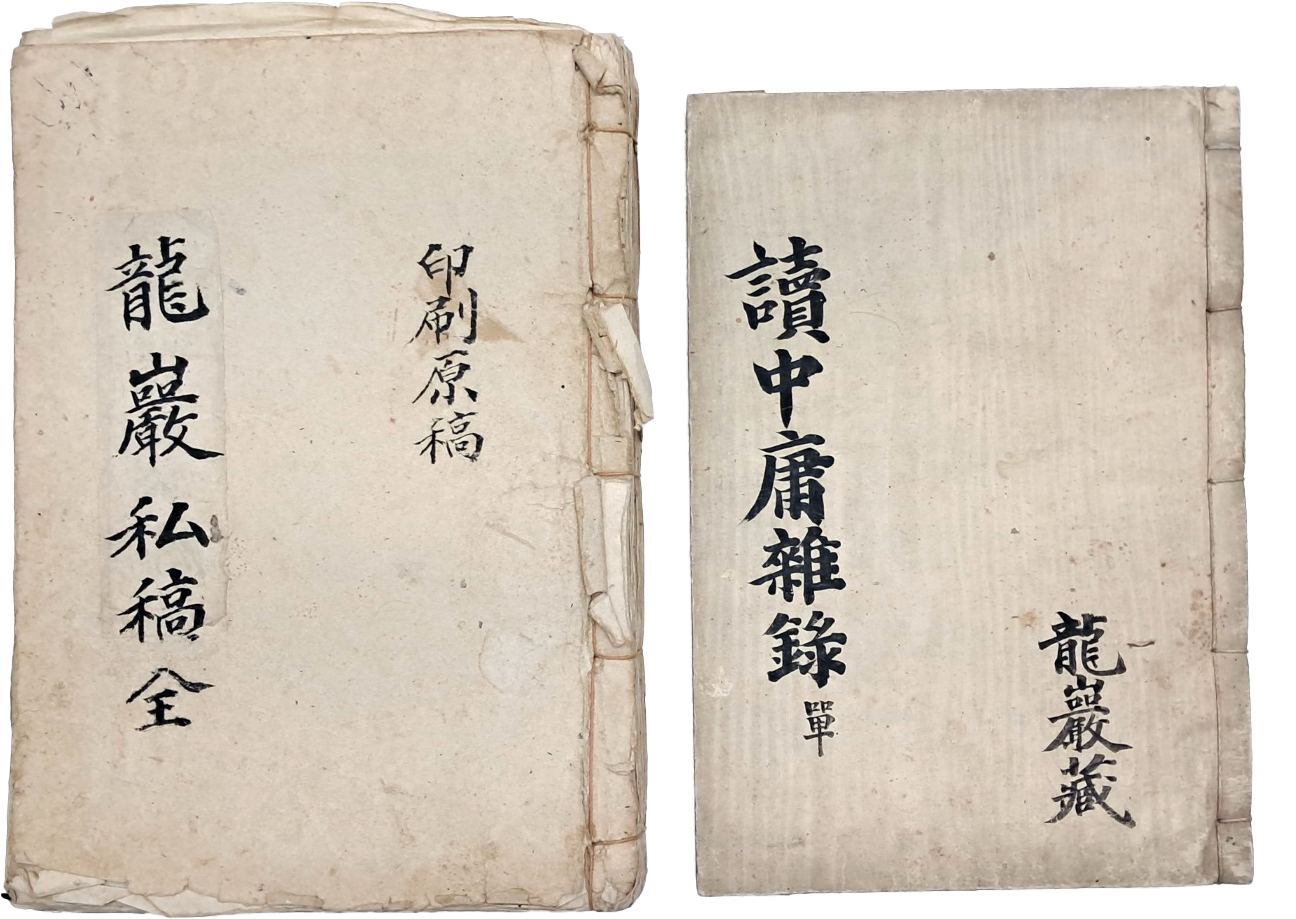 印刷原稿
龍巖私稿全
龍巖藏
讀中庸雜錄單